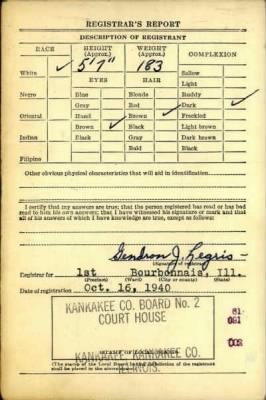 REGISTRAR'S REPORT
DESCRIPTION OF REGISTRANT
RACE HEIGHT (Approx.) WEIGHT (Approx.) COMPLEXION
White ✓ 5'7" 183 Sallow
EYES HAIR Light
Negro Blue Blonde Ruddy
Gray Red Dark ✓
Oriental Hazel Brown ✓ Freckled
Brown ✓ Black Light brown
Indian Black Gray Dark brown
Bald Black
Filipino
Other obvious physical characteristics that will aid in identification
I certify that my answers are true; that the person registered has read or has had
read to him his own answers; that I have witnessed his signature or mark and that
all of his answers of which I have knowledge are true, except as follows:
Gendron J. Legris
(Signature of registrar)
Registrar for 1st Bourbonnais, Ill.
(Precinct) (Ward) (City or county) (State)
Date of registration Oct. 16, 1940
KANKAKEE CO. BOARD No. 2
COURT HOUSE
KANKAKEE, KANKAKEE CO.
ILLINOIS.
(The stamp of the Local Board having jurisdiction of the registrant
shall be placed in the above space.)